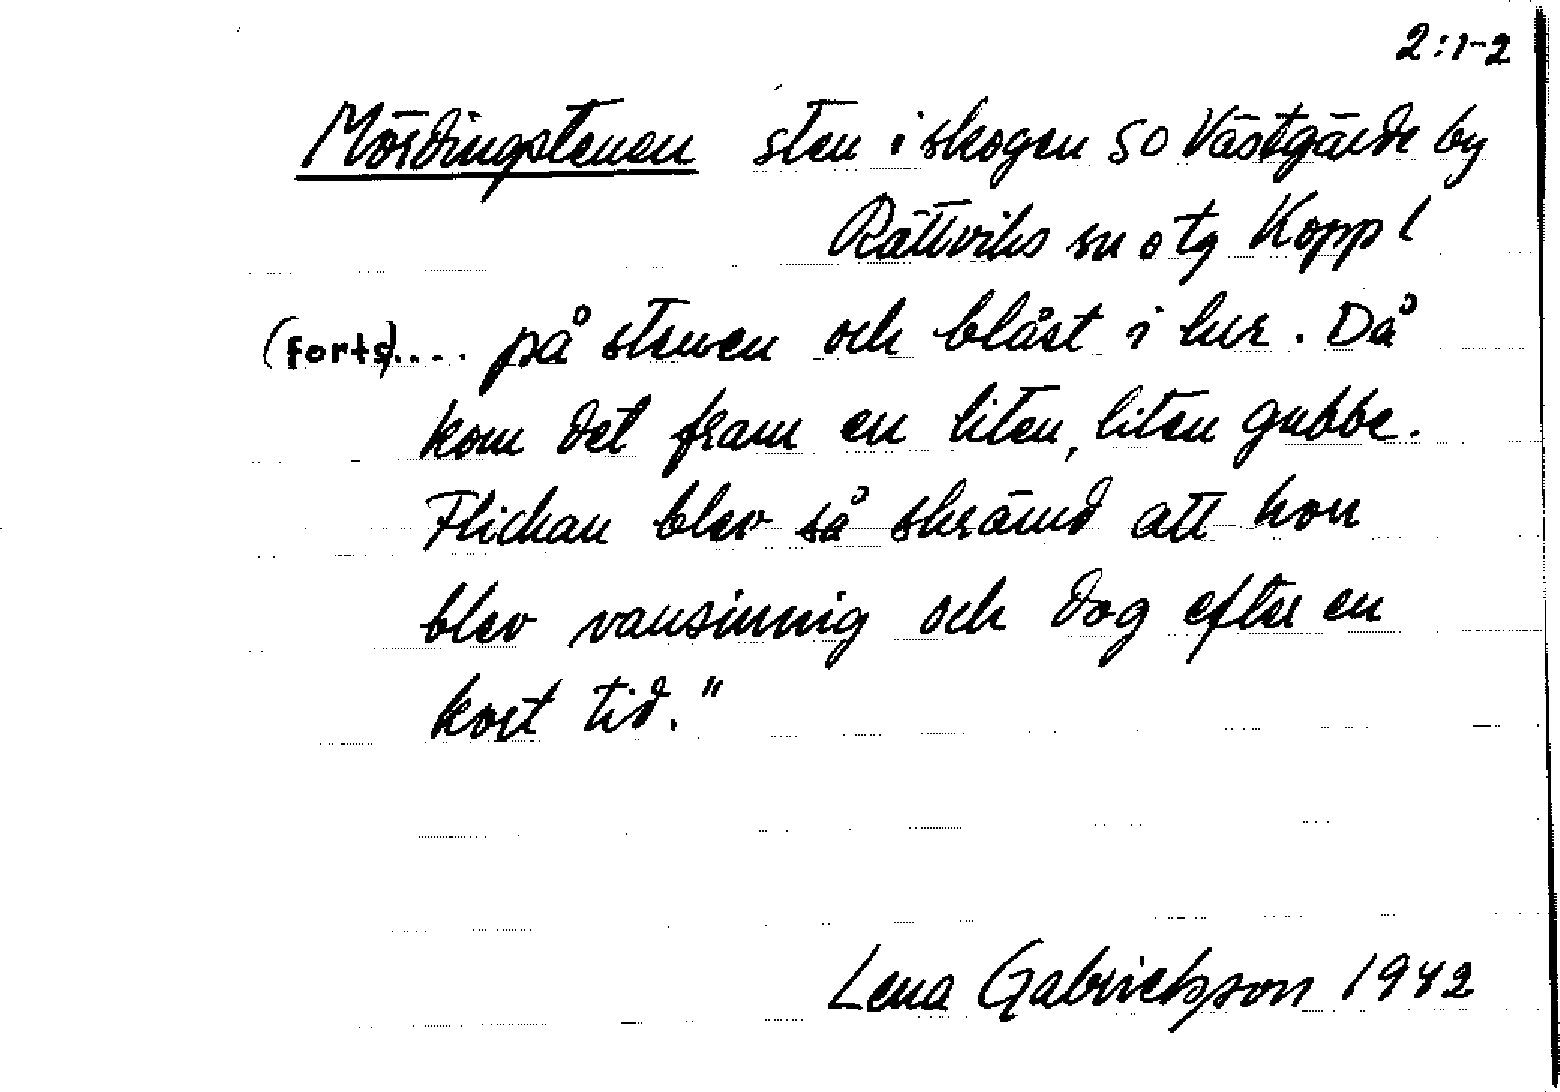 2:1-2
Mördingstenen sten i skogen SO Västgärde by
Rättviks sn o tg Kopp l
(forts).... på stenen och blåst i lur. Då
kom det fram en liten, liten gubbe.
Flickan blev så skrämd att hon
blev vansinnig och dog efter en
kort tid."
Lena Gabrielsson 1942